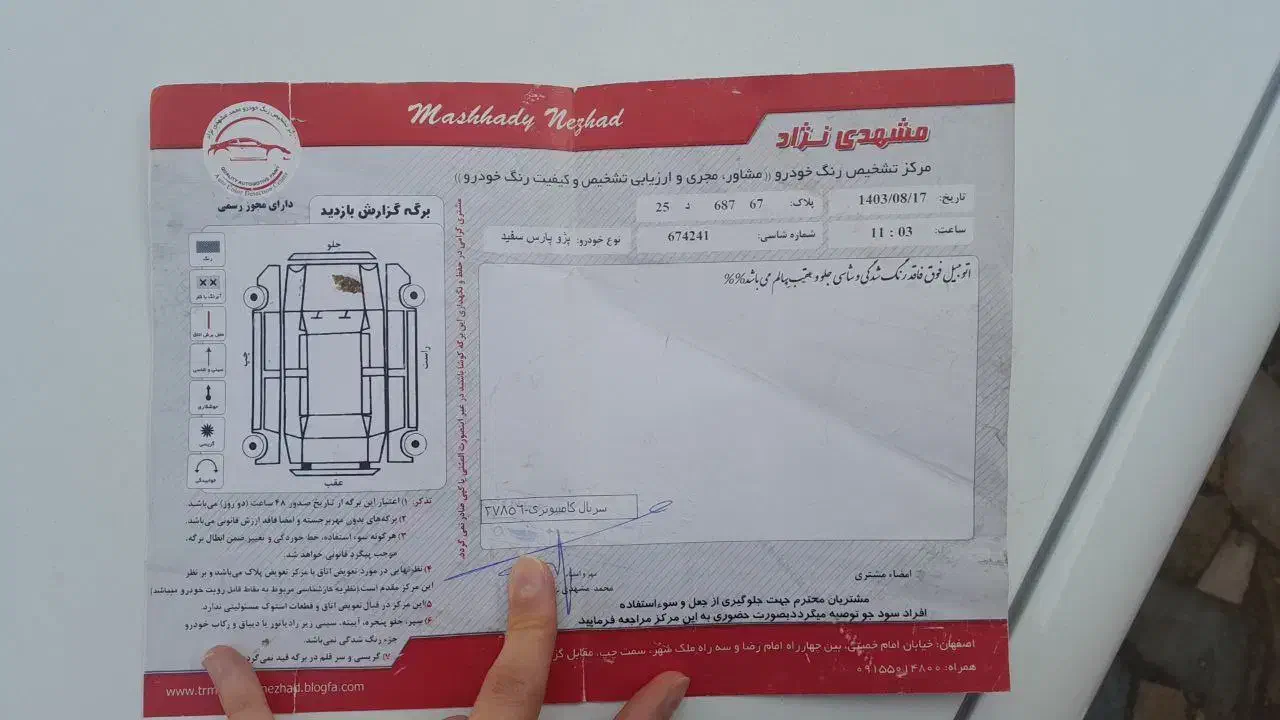 Mashhady Nezhad
مشهدی نژاد
مرکز تشخیص رنگ خودرو (( مشاور، مجری و ارزیابی تشخیص و کیفیت رنگ خودرو ))
تاریخ: 1403/08/17
پلاک: 67 687 د 25
ساعت: 11 : 03
شماره شاسی: 674241
نوع خودرو: پژو پارس سفید
اتومبیل فوق فاقد رنگ شدگی و شاسی جلو و عقب سالم می باشد%%
سریال کامپیوتری-۲۷۸۵۶
مهر و امضاء
محمد مشهدی
امضاء مشتری
مشتریان محترم جهت جلوگیری از جعل و سوءاستفاده
افراد سود جو توصیه میگرددبصورت حضوری به این مرکز مراجعه فرمایید
دارای مجوز رسمی
برگه گزارش بازدید
جلو
چپ
راست
عقب
رنگ
جوشکاری
گریسی
خوابیدگی
مشتری گرامی در حفظ و نگهداری این برگه کوشا باشید در غیر اینصورت المثنی یا کپی صادر نمی گردد.
تذکر: ۱) اعتبار این برگه از تاریخ صدور ۴۸ ساعت (دو روز) می‌باشد.
۲) برگه‌های بدون مهر برجسته و امضا فاقد ارزش قانونی می‌باشد.
۳) هرگونه سوء استفاده، خط خوردگی و تغییر ضمن ابطال برگه.
موجب پیگرد قانونی خواهد شد.
۴) نظر نهایی در مورد تعویض اتاق با مرکز تعویض پلاک می‌باشد و بر نظر
این مرکز مقدم است (نظریه کارشناسی مربوط به نقاط قابل رویت خودرو میباشد)
۵) این مرکز در قبال تعویض اتاق و قطعات استوک مسئولیتی ندارد.
۶) سپر، جلو پنجره، آیینه، سینی زیر رادیاتور یا دیاق و رکاب خودرو
جزء رنگ شدگی نمی‌باشد.
۷) گریسی و سر قلم در برگه قید نمی‌گردد
اصفهان: خیابان امام خمینی، بین چهارراه امام رضا و سه راه ملک شهر، سمت چپ، مقابل
همراه: ۰۹۱۵۵۰۱۴۸۰۰
nezhad.blogfa.com